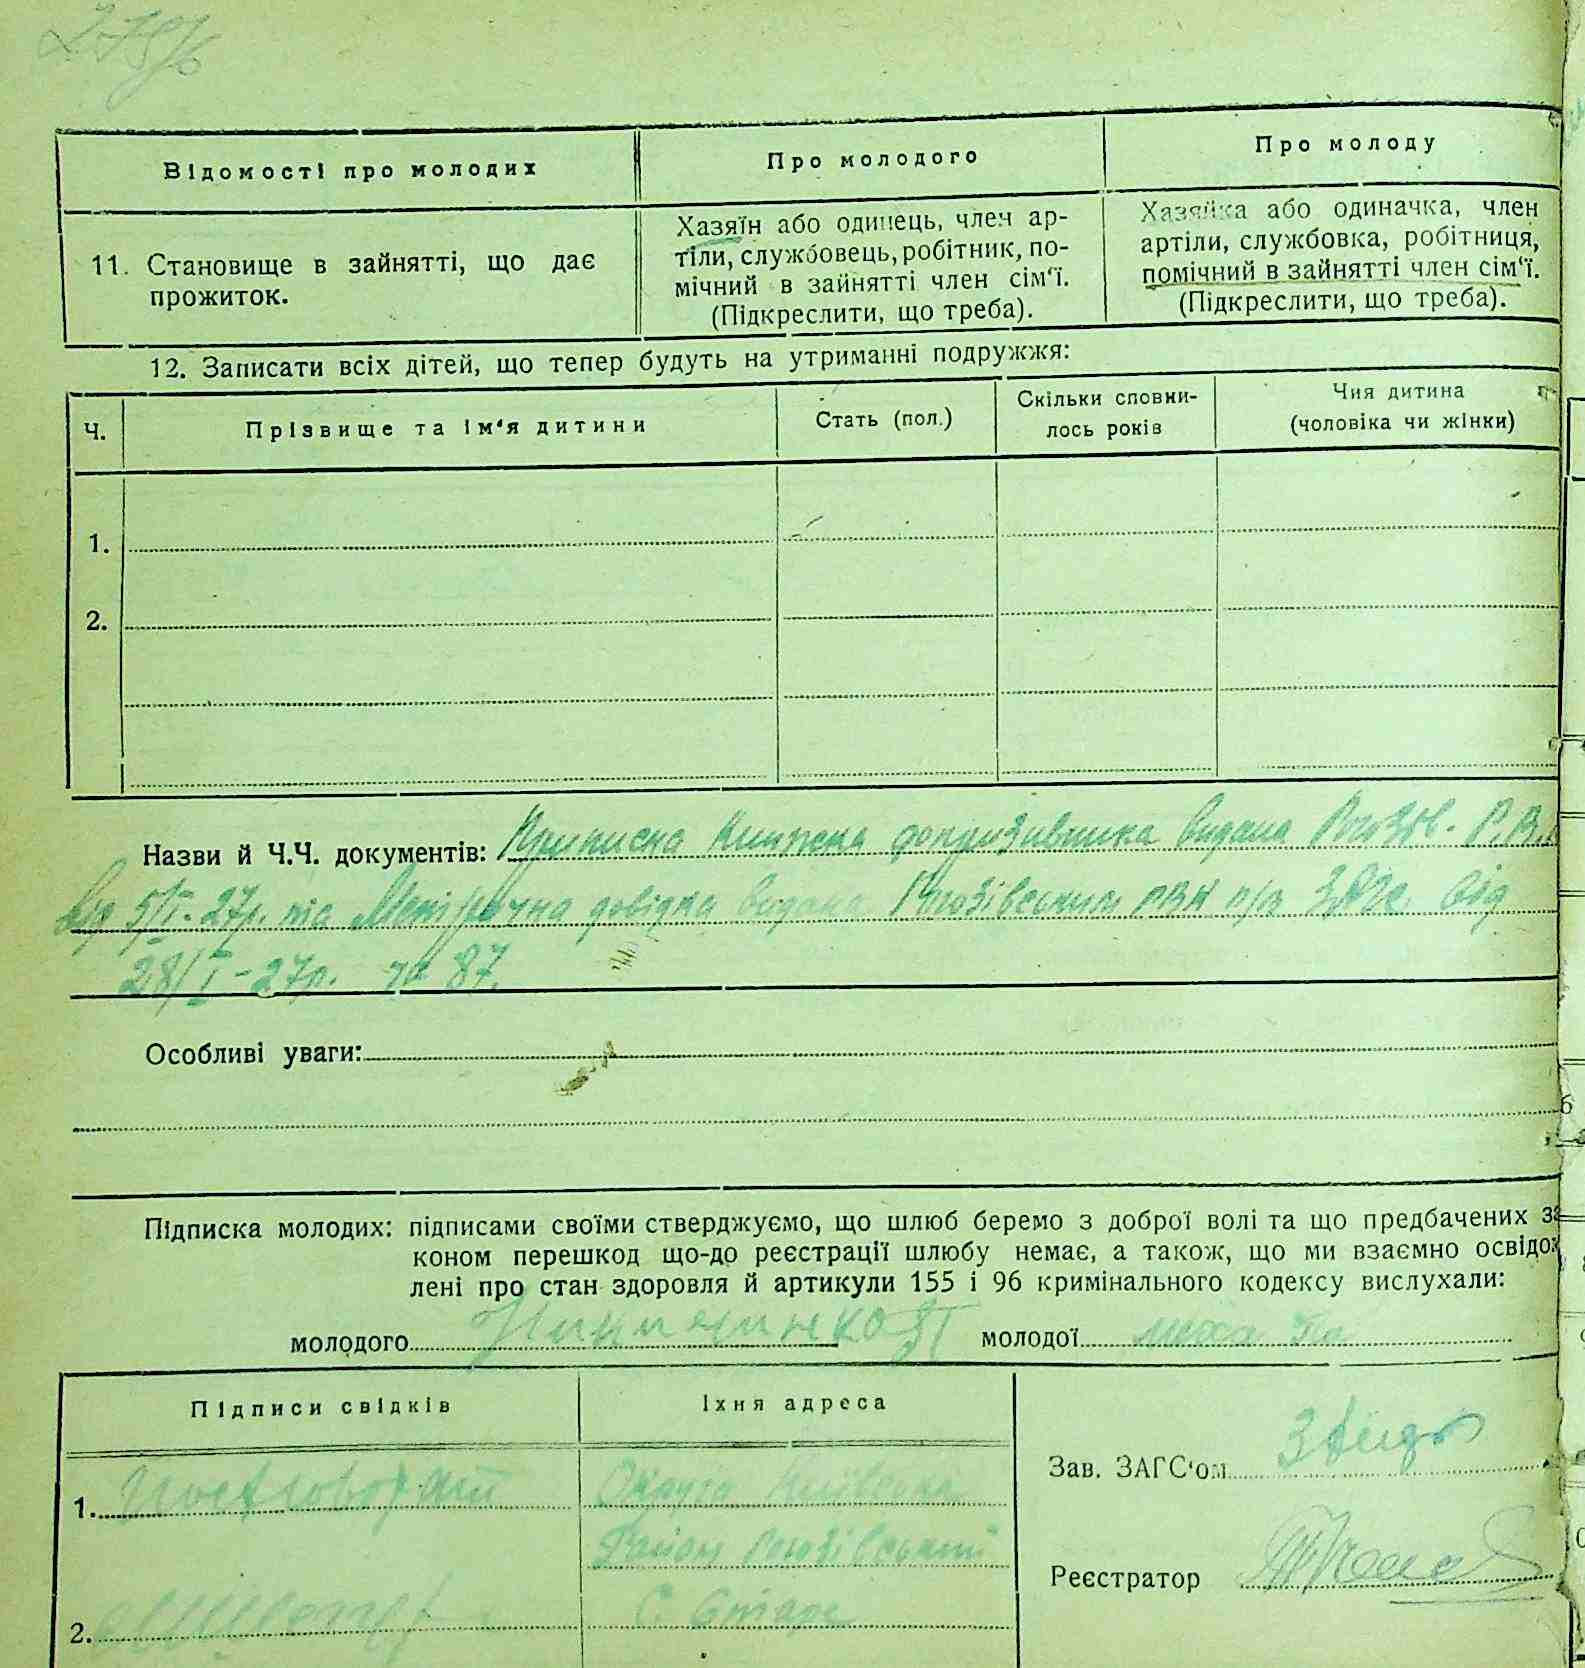 Відомості про молодих
Про молодого
Про молоду
11. Становище в зайнятті, що дає
прожиток.
Хазяїн або одинець, член ар-
тіли, службовець, робітник, по-
мічний в зайнятті член сім'ї.
(Підкреслити, що треба).
Хазяйка або одиначка, член
артіли, службовка, робітниця,
помічний в зайнятті член сім'ї.
(Підкреслити, що треба).
12. Записати всіх дітей, що тепер будуть на утриманні подружжя:
Ч.
Прізвище та ім'я дитини
Стать (пол.)
Скільки сповни-
лось років
Чия дитина
(чоловіка чи жінки)
1.
2.
Назви й Ч.Ч. документів: Приписна книжка допризивника видана Рогозів. Р.В.
5/I-27р. та Метрична довідка видана Рогозівським РВК від
28/I-27р. № 87.
Особливі уваги:
Підписка молодих: підписами своїми стверджуємо, що шлюб беремо з доброї волі та що предбачених за
коном перешкод що-до реєстрації шлюбу немає, а також, що ми взаємно освідо
лені про стан здоровля й артикули 155 і 96 кримінального кодексу вислухали:
молодого
молодої
Підписи свідків
Їхня адреса
1.
Округа
Район Рогозівський
2.
С. Старе
Зав. ЗАГС'ом
Реєстратор